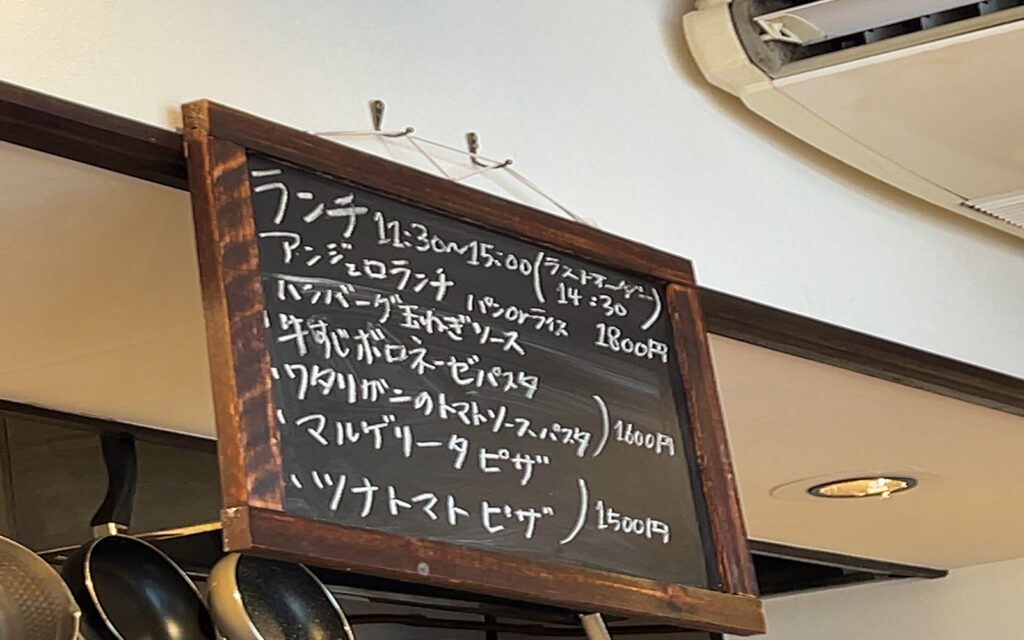 ランチ 11:30~15:00(ラストオーダー 14:30)
アンジェロランチ パンorライス 1800円
ハンバーグ玉ねぎソース
・牛すじボロネーゼパスタ
・ワタリガニのトマトソースパスタ)1600円
・マルゲリータピザ
・ツナトマトピザ)1500円